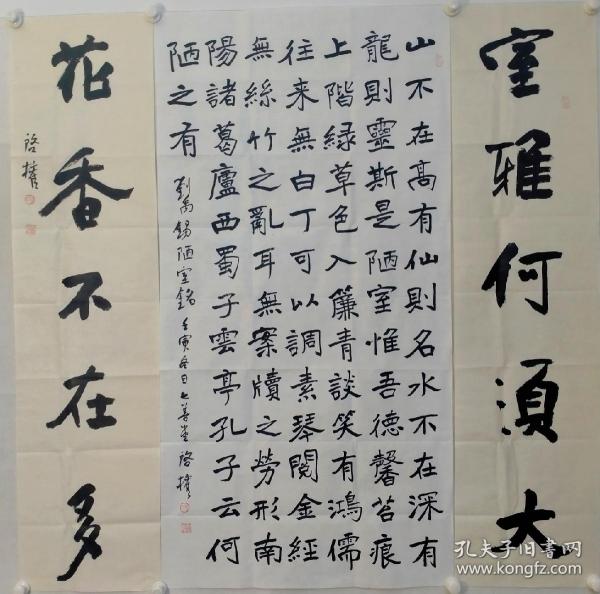 室雅何須大
山不在髙有仙則名水不在深有
龍則靈斯是陋室惟吾德馨苔痕
上階緑草色入簾青談笑有鴻儒
往来無白丁可以調素琴閱金經
無絲竹之亂耳無案牘之勞形南
陽諸葛廬西蜀子雲亭孔子云何
陋之有
劉禹錫陋室銘 壬寅冬日 善堂 啓
花香不在多
啓
孔夫子旧书网
www.kongfz.com